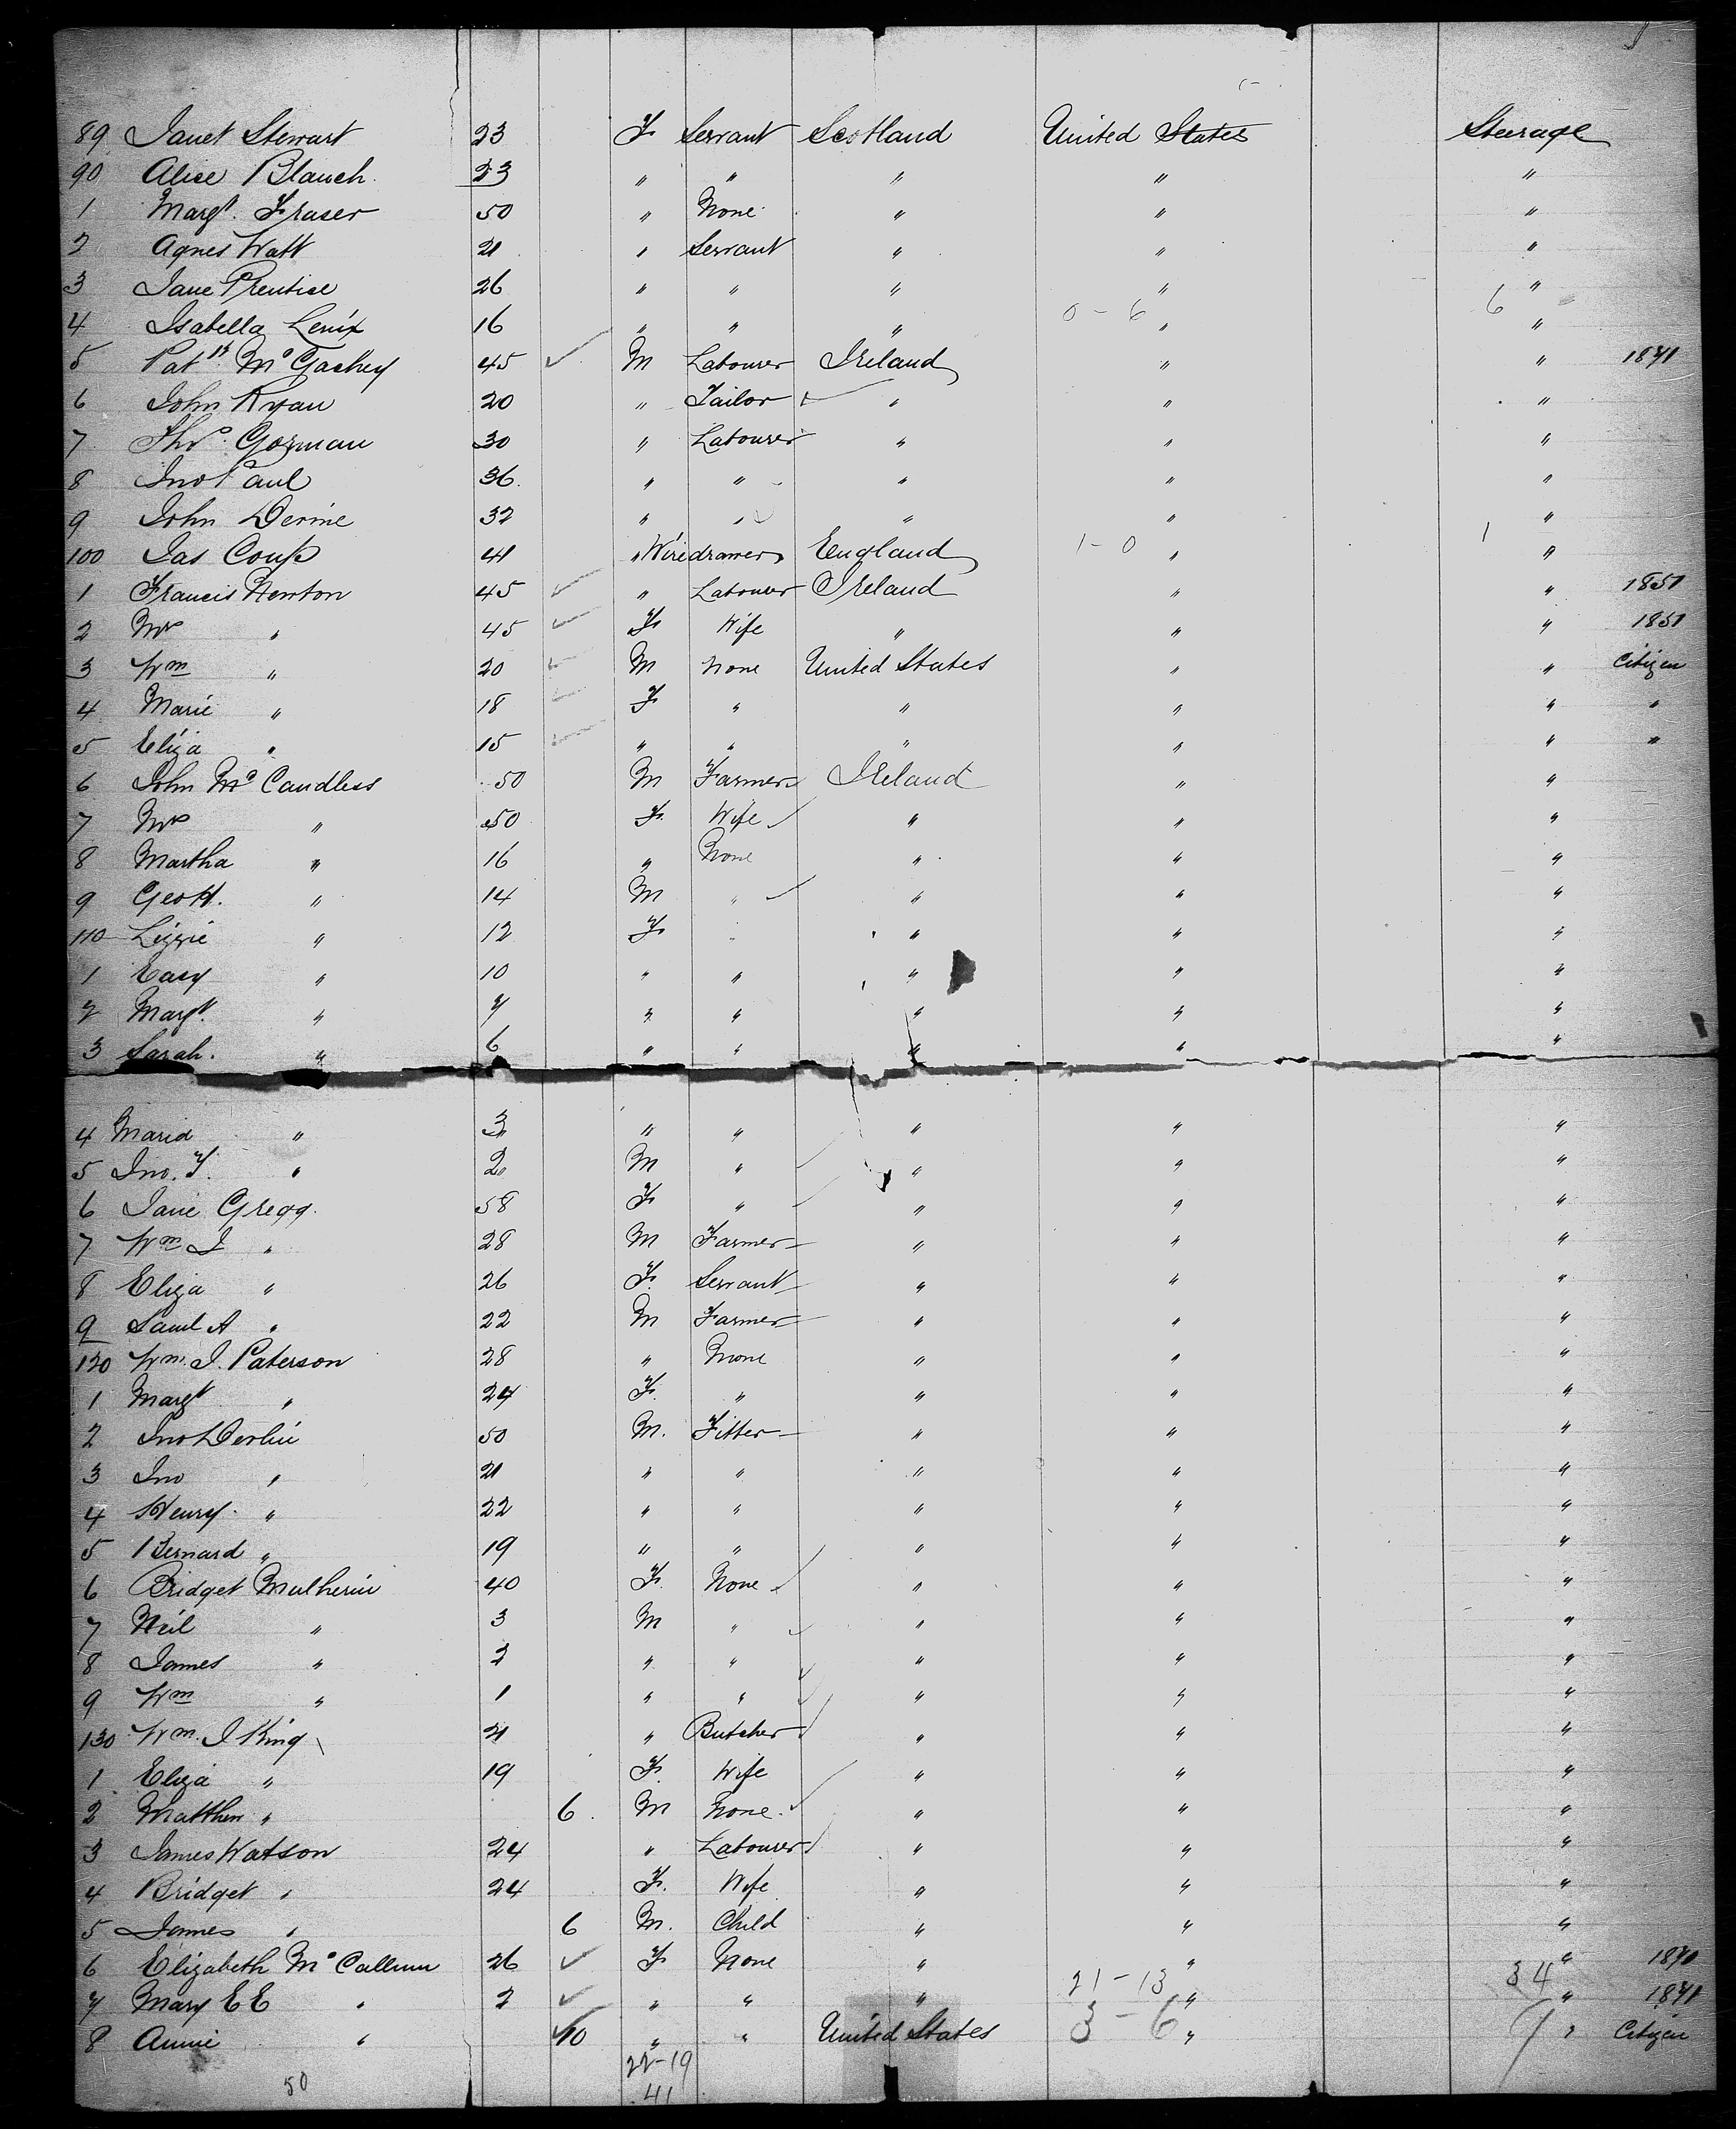 89 Janet Stewart 23 F Servant Scotland United States Steerage
90 Alice Blauch 23 " " " " "
1 Margt. Fraser 50 " None " " "
2 Agnes Watt 21 " Servant " " "
3 Jane Prentice 26 " " " " "
4 Isabella Lenix 16 " " " 0-6 " 6 "
5 Patk. McGachey 45 ✓ M Labourer Ireland " " 1871
6 John Ryan 20 " Tailor " " "
7 Thos. Gorman 30 " Labourer " " "
8 Jno Paul 36 " " " " "
9 John Devine 32 " " " " "
100 Jas Coup 41 " Wiredrawer England 1-0 " 1 "
1 Francis Newton 45 ✓ " Labourer Ireland " " 1851
2 Mrs " 45 ✓ F Wife " " " 1851
3 Wm " 20 ✓ M None United States " " Citizen
4 Marie " 18 ✓ F " " " " "
5 Eliza " 15 ✓ " " " " " "
6 John McCandless 50 M Farmer Ireland " "
7 Mrs " 50 F Wife " " "
8 Martha " 16 " None " " "
9 Geo H. " 14 M " " " "
110 Lizzie " 12 F " " " "
1 Easy " 10 " " " " "
2 Margt. " 7 " " " " "
3 Sarah. " 6 " " " " "
4 Maria " 3 " " " " "
5 Jno. F. " 2 M " " " "
6 Jane Gregg. 58 F " " " "
7 Wm J " 28 M Farmer " " "
8 Eliza " 26 F Servant " " "
9 Saml A " 22 M Farmer " " "
120 Wm. J. Paterson 28 " None " " "
1 Margt " 24 F " " " "
2 Jno Devlin 50 M. Fitter " " "
3 Jno " 21 " " " " "
4 Henry " 22 " " " " "
5 Bernard " 19 " " " " "
6 Bridget Mulherin 40 F. None " " "
7 Neil " 3 M " " " "
8 James " 2 " " " " "
9 Wm " 1 " " " " "
130 Wm. J King 21 " Butcher " " "
1 Eliza " 19 F. Wife " " "
2 Matthew " 6 M None " " "
3 James Watson 24 " Labourer " " "
4 Bridget " 24 F. Wife " " "
5 James " 6 M. Child " " "
6 Elizabeth McCallum 26 ✓ F None " " " 1870
7 Mary E E " 2 ✓ " " " 21-13 " 34 " 1871
8 Annie " 10 ✓ " " United States 3-6 " 9 " Citizen
50 22-19
41